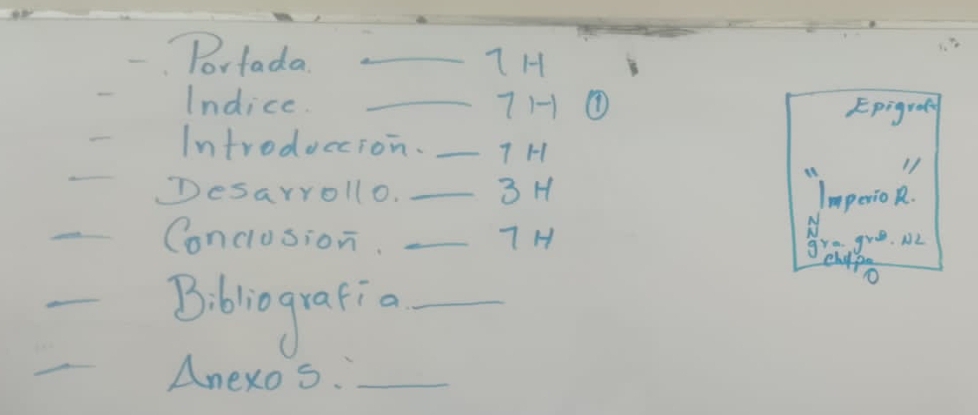 - Portada. — 1 H
- Indice. — 1 H ①
- Introducción. — 1 H
- Desarrollo. — 3 H
- Conclusión. — 1 H
- Bibliografía. —
- Anexos. —
Epigrafe
" "
Imperio R.
N
N
gra. gro. N2